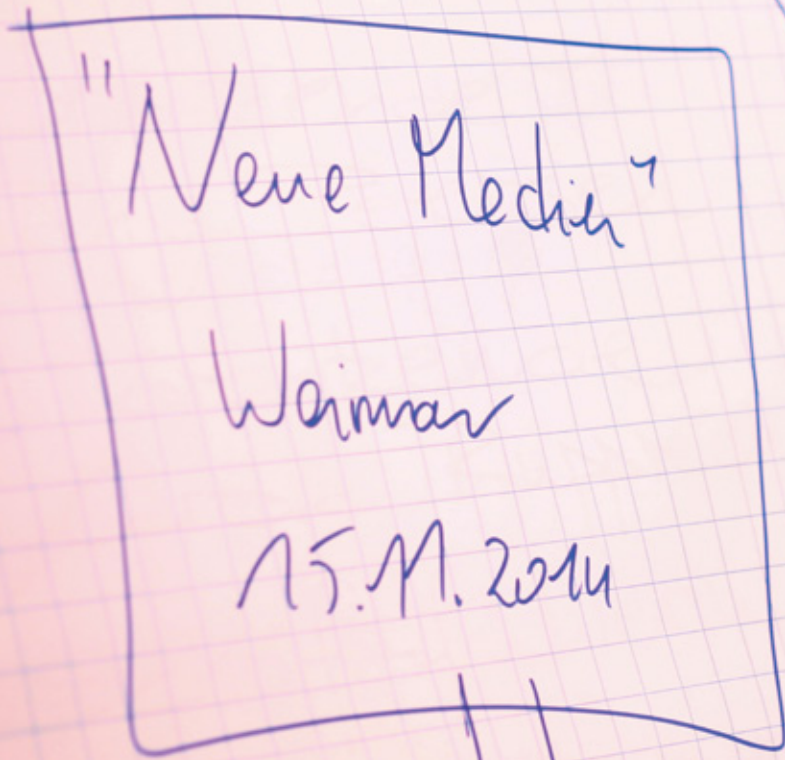 "Neue Medien"
Weimar
15.11.2014